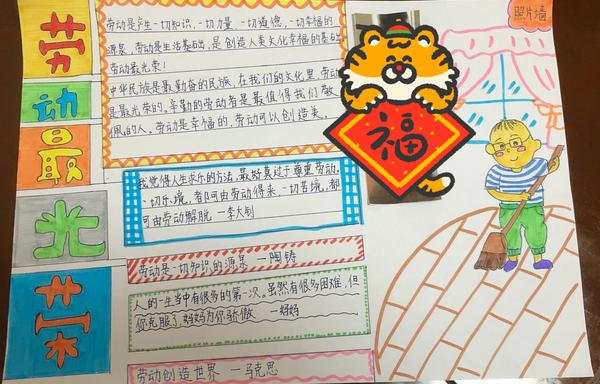 劳
动
最
光
荣
劳动是产生一切知识、一切力量、一切道德、一切幸福的
源泉,劳动是生活基础,是创造人类文化幸福的基础。
劳动最光荣!
中华民族是最勤奋的民族,在我们的文化里,劳动
是最光荣的,辛勤的劳动者是最值得我们敬
佩的人。劳动是幸福的,劳动可以创造美。
我觉得人生求乐的方法,最好莫过于尊重劳动。
一切乐境,都可由劳动得来,一切苦境,都
可由劳动解脱 —李大钊
劳动是一切知识的源泉 —陶铸
人的一生当中有很多的第一次。虽然有很多困难,但
你克服了,妈妈为你骄傲 —妈妈
劳动创造世界 —马克思
福
照片墙